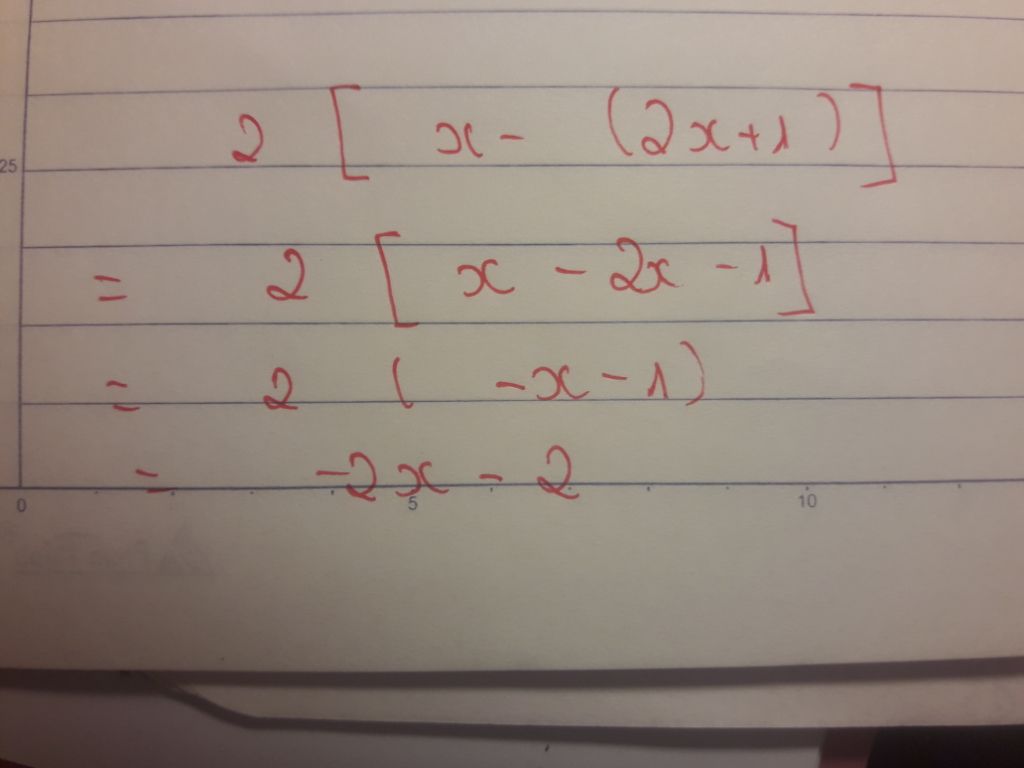 2 [ x - (2x+1) ]
25
= 2 [ x - 2x - 1 ]
= 2 ( -x - 1 )
= -2x - 2
0 5 10